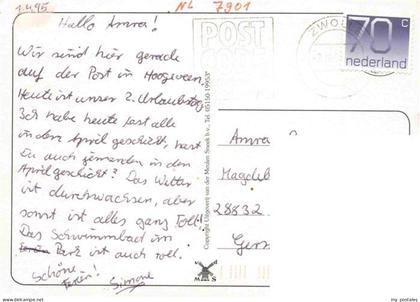 1.4.95
NL 7901
Hallo Amra!
POST
ZWOL
70 c
nederland
Wir sind hier gerade
auf der Post in Hoogeveen.
Heute ist unser 2. Urlaubstag
Ich habe heute fast alle
in den April geschickt, hast
Du auch jemanden in den
April geschickt? Das Wetter
ist durchwachsen, aber
sonst ist alles ganz toll!
Das Schwimmbad im
Park ist auch toll.
Schöne
Ferien! Simone
Copyright Uitgeverij van der Meulen Sneek b.v., Tel. 05150-19953*
M S
Amra
Magdeb
28832
Ger